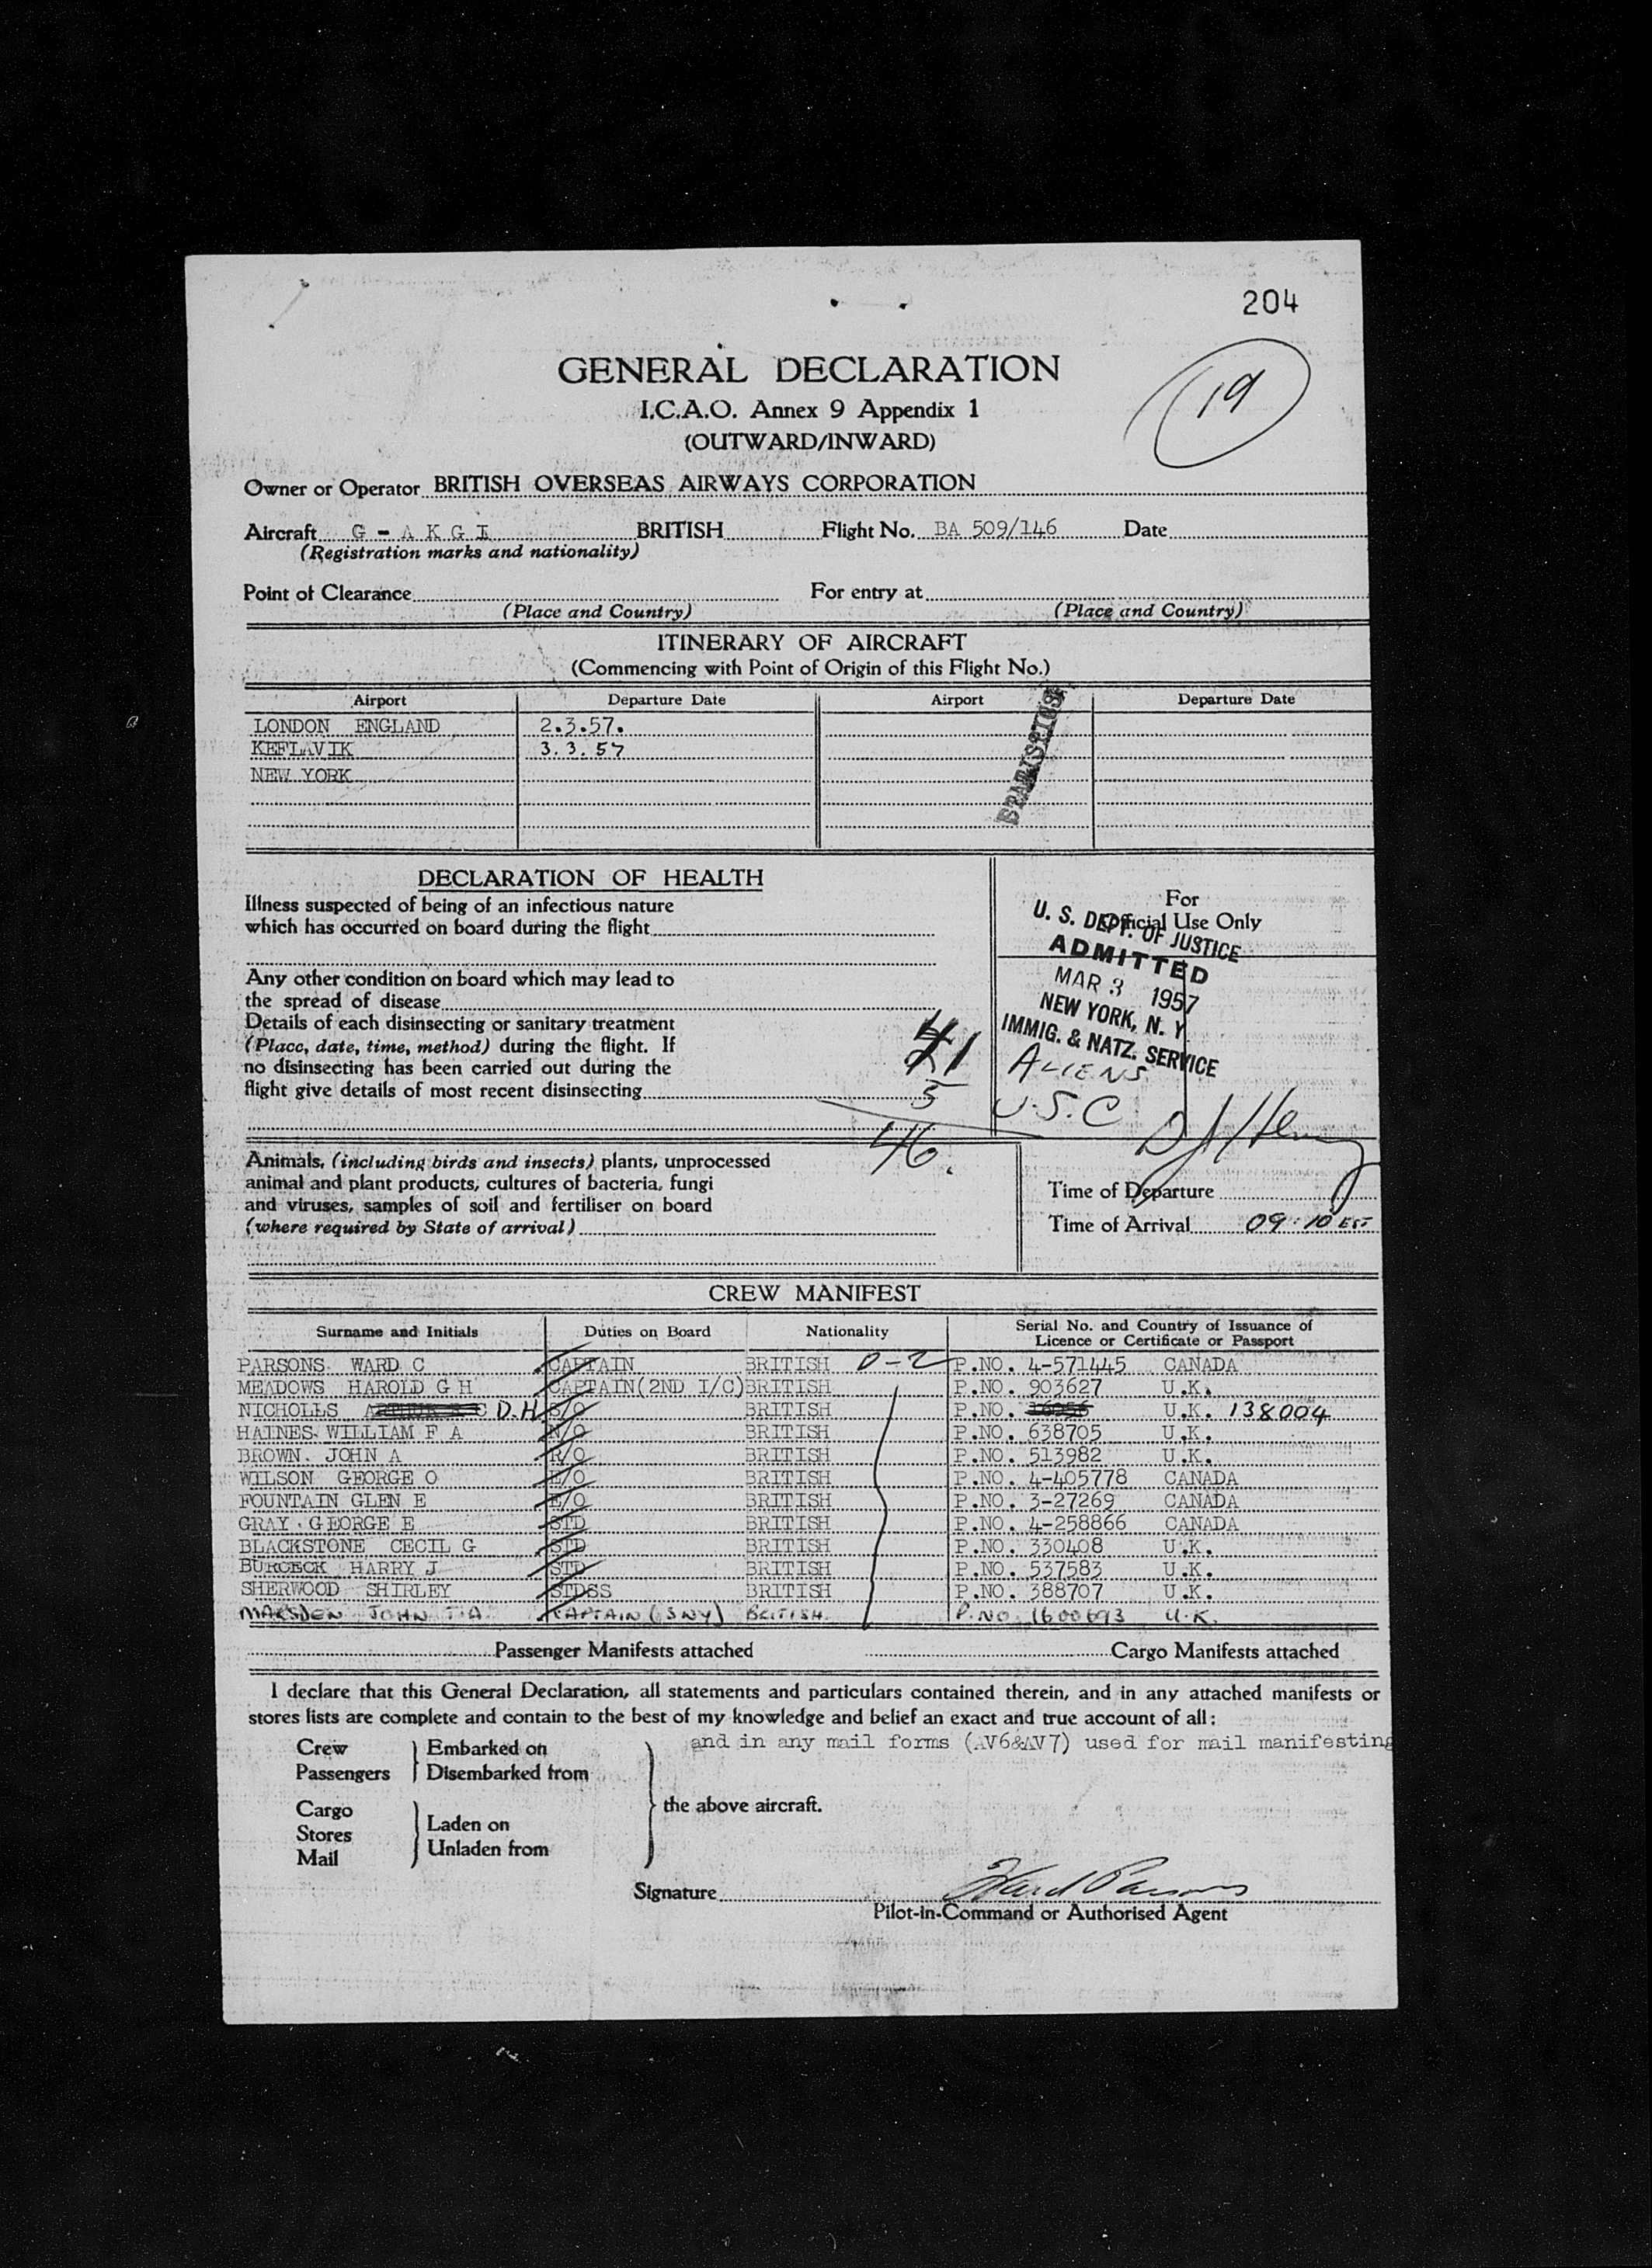 204
19
GENERAL DECLARATION
I.C.A.O. Annex 9 Appendix 1
(OUTWARD/INWARD)
Owner or Operator BRITISH OVERSEAS AIRWAYS CORPORATION
Aircraft G - A K G I BRITISH Flight No. BA 509/146 Date
(Registration marks and nationality)
Point of Clearance For entry at
(Place and Country) (Place and Country)
ITINERARY OF AIRCRAFT
(Commencing with Point of Origin of this Flight No.)
Airport Departure Date Airport Departure Date
LONDON ENGLAND 2.3.57.
KEFLAVIK 3.3.57
NEW YORK
DECLARATION OF HEALTH
Illness suspected of being of an infectious nature
which has occurred on board during the flight
Any other condition on board which may lead to
the spread of disease
Details of each disinsecting or sanitary treatment
(Place, date, time, method) during the flight. If
no disinsecting has been carried out during the
flight give details of most recent disinsecting
For
Official Use Only
U. S. DEPT. OF JUSTICE
ADMITTED
MAR 3 1957
NEW YORK, N. Y.
IMMIG. & NATZ. SERVICE
41 ALIENS
5 U.S.C
46.
Animals, (including birds and insects) plants, unprocessed
animal and plant products, cultures of bacteria, fungi
and viruses, samples of soil and fertiliser on board
(where required by State of arrival)
Time of Departure
Time of Arrival 09:10 EST
CREW MANIFEST
Surname and Initials Duties on Board Nationality Serial No. and Country of Issuance of Licence or Certificate or Passport
PARSONS WARD C CAPTAIN BRITISH D-2 P.NO. 4-571445 CANADA
MEADOWS HAROLD G H CAPTAIN(2ND I/C) BRITISH P.NO. 903627 U.K.
NICHOLLS D.H S/O BRITISH P.NO. U.K. 138004
HAINES WILLIAM F A N/O BRITISH P.NO. 638705 U.K.
BROWN. JOHN A R/O BRITISH P.NO. 513982 U.K.
WILSON GEORGE O E/O BRITISH P.NO. 4-405778 CANADA
FOUNTAIN GLEN E E/O BRITISH P.NO. 3-27269 CANADA
GRAY. GEORGE E STD BRITISH P.NO. 4-258866 CANADA
BLACKSTONE CECIL G STD BRITISH P.NO. 330408 U.K.
HARRY J STD BRITISH P.NO. 537583 U.K.
SHERWOOD SHIRLEY STDSS BRITISH P.NO. 388707 U.K.
MARSDEN JOHN CAPTAIN (SNY) BRITISH. P.NO. 1600693 U.K.
Passenger Manifests attached Cargo Manifests attached
I declare that this General Declaration, all statements and particulars contained therein, and in any attached manifests or
stores lists are complete and contain to the best of my knowledge and belief an exact and true account of all:
and in any mail forms (AV6&AV7) used for mail manifesting
Crew Embarked on
Passengers Disembarked from
the above aircraft.
Cargo
Stores Laden on
Mail Unladen from
Signature Ward Parsons
Pilot-in-Command or Authorised Agent